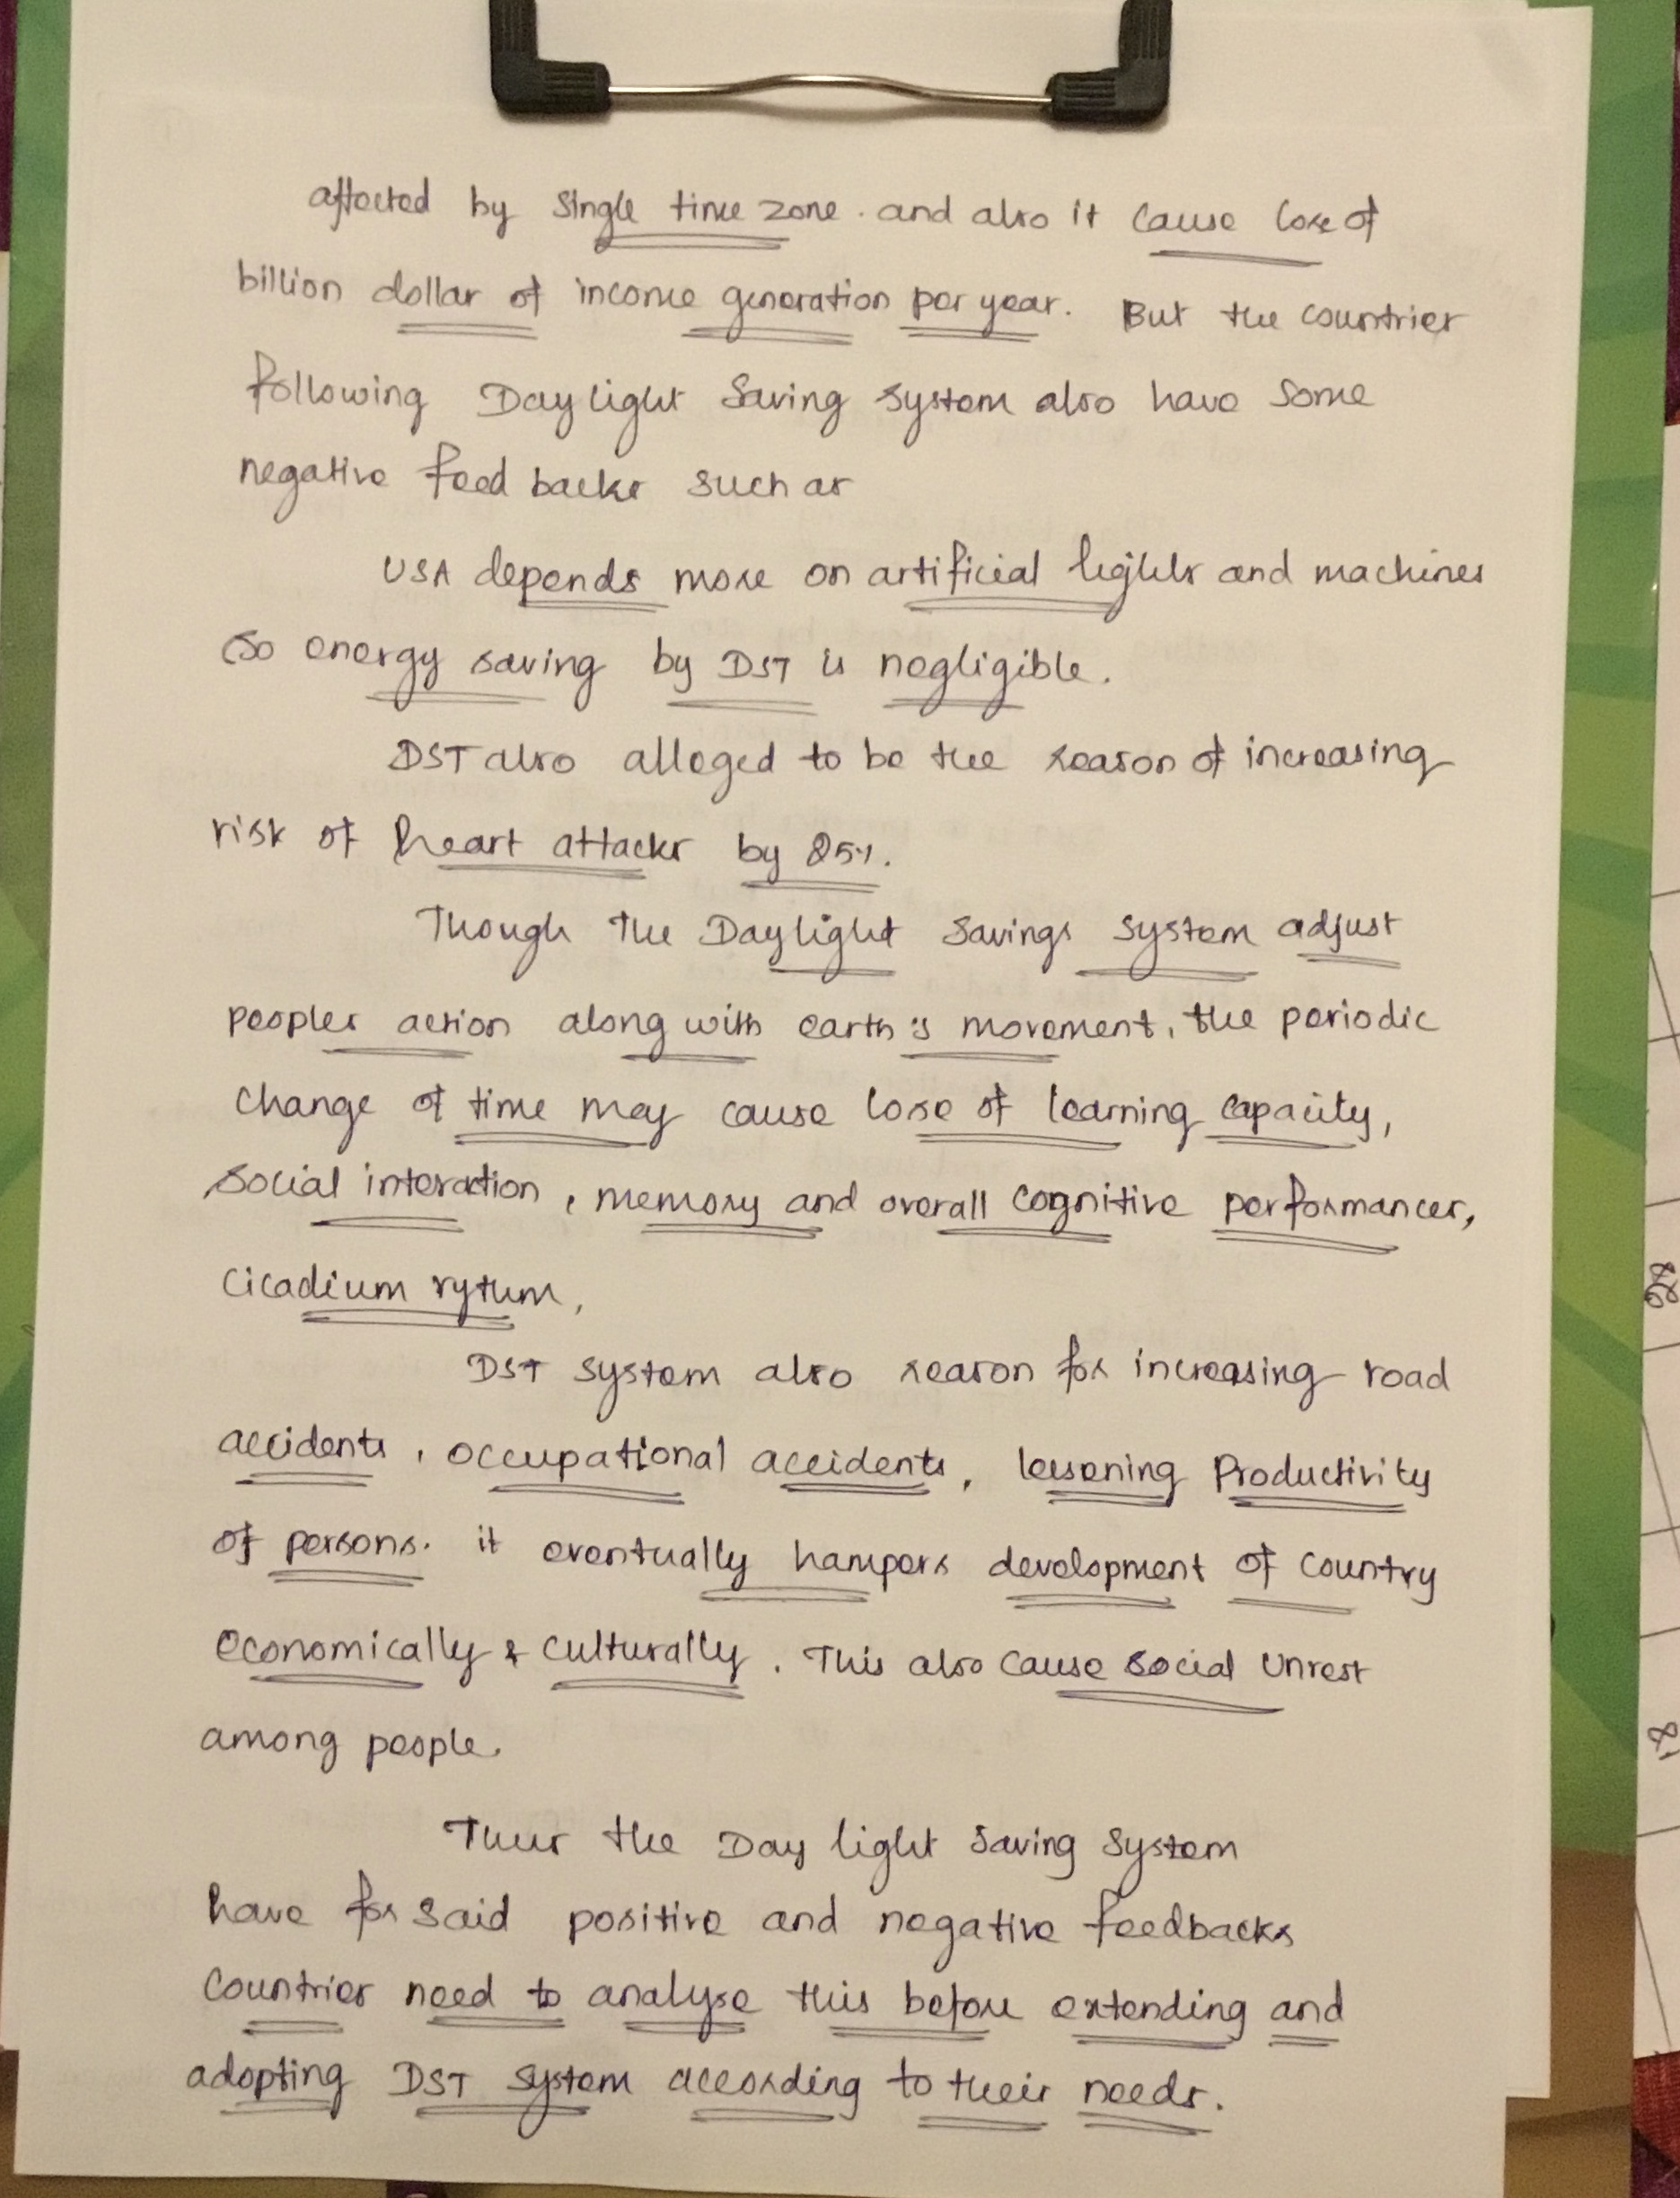 affected by single time zone. and also it cause lose of
billion dollar of income generation per year. But the countries
following Day light Saving system also have some
negative feed backs such as
USA depends more on artificial lights and machines
so energy saving by DST is negligible.
DST also alleged to be the reason of increasing
risk of heart attacks by 25%.
Though the Daylight Savings system adjust
peoples action along with earth's movement, the periodic
change of time may cause lose of learning capacity,
social interaction, memory and overall cognitive performances,
cicadium rytum,
DST system also reason for increasing road
accidents, occupational accidents, lessening productivity
of persons. it eventually hampers development of country
economically & culturally. This also cause social unrest
among people.
Thus the Day light saving system
have for said positive and negative feedbacks
countries need to analyse this before extending and
adopting DST system according to their needs.